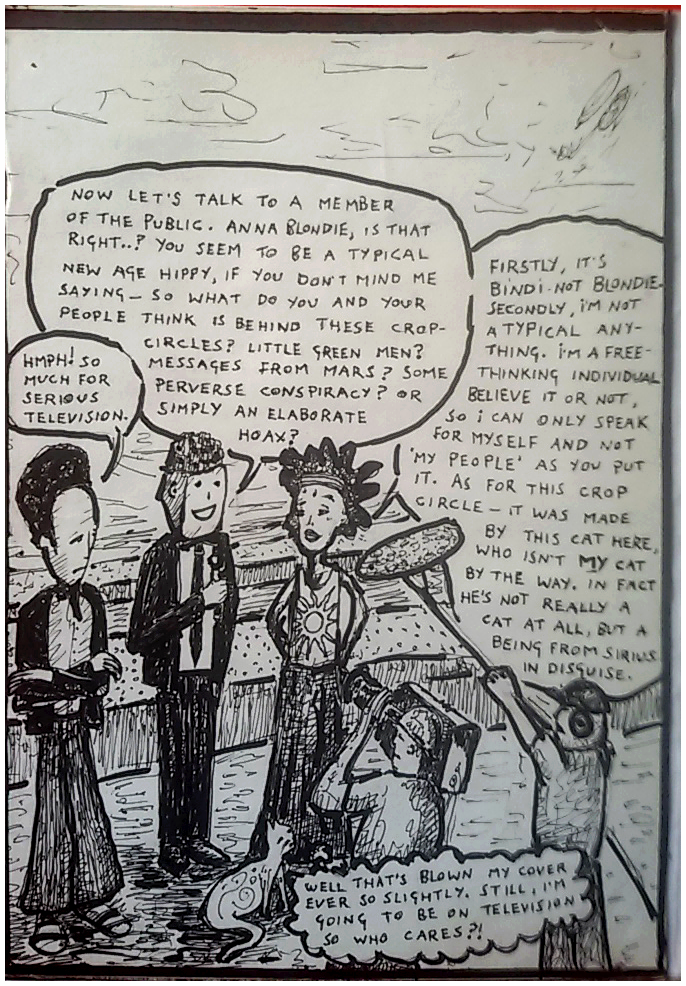 NOW LET'S TALK TO A MEMBER
OF THE PUBLIC. ANNA BLONDIE, IS THAT
RIGHT..? YOU SEEM TO BE A TYPICAL
NEW AGE HIPPY, IF YOU DON'T MIND ME
SAYING — SO WHAT DO YOU AND YOUR
PEOPLE THINK IS BEHIND THESE CROP-
CIRCLES? LITTLE GREEN MEN?
MESSAGES FROM MARS? SOME
PERVERSE CONSPIRACY? OR
SIMPLY AN ELABORATE
HOAX?
HMPH! SO
MUCH FOR
SERIOUS
TELEVISION.
FIRSTLY, IT'S
BINDI-NOT BLONDIE-
SECONDLY, I'M NOT
A TYPICAL ANY-
THING. I'M A FREE-
THINKING INDIVIDUAL
BELIEVE IT OR NOT,
SO I CAN ONLY SPEAK
FOR MYSELF AND NOT
'MY PEOPLE' AS YOU PUT
IT. AS FOR THIS CROP
CIRCLE — IT WAS MADE
BY THIS CAT HERE,
WHO ISN'T MY CAT
BY THE WAY. IN FACT
HE'S NOT REALLY A
CAT AT ALL, BUT A
BEING FROM SIRIUS
IN DISGUISE.
WELL THAT'S BLOWN MY COVER
EVER SO SLIGHTLY. STILL, I'M
GOING TO BE ON TELEVISION
SO WHO CARES?!